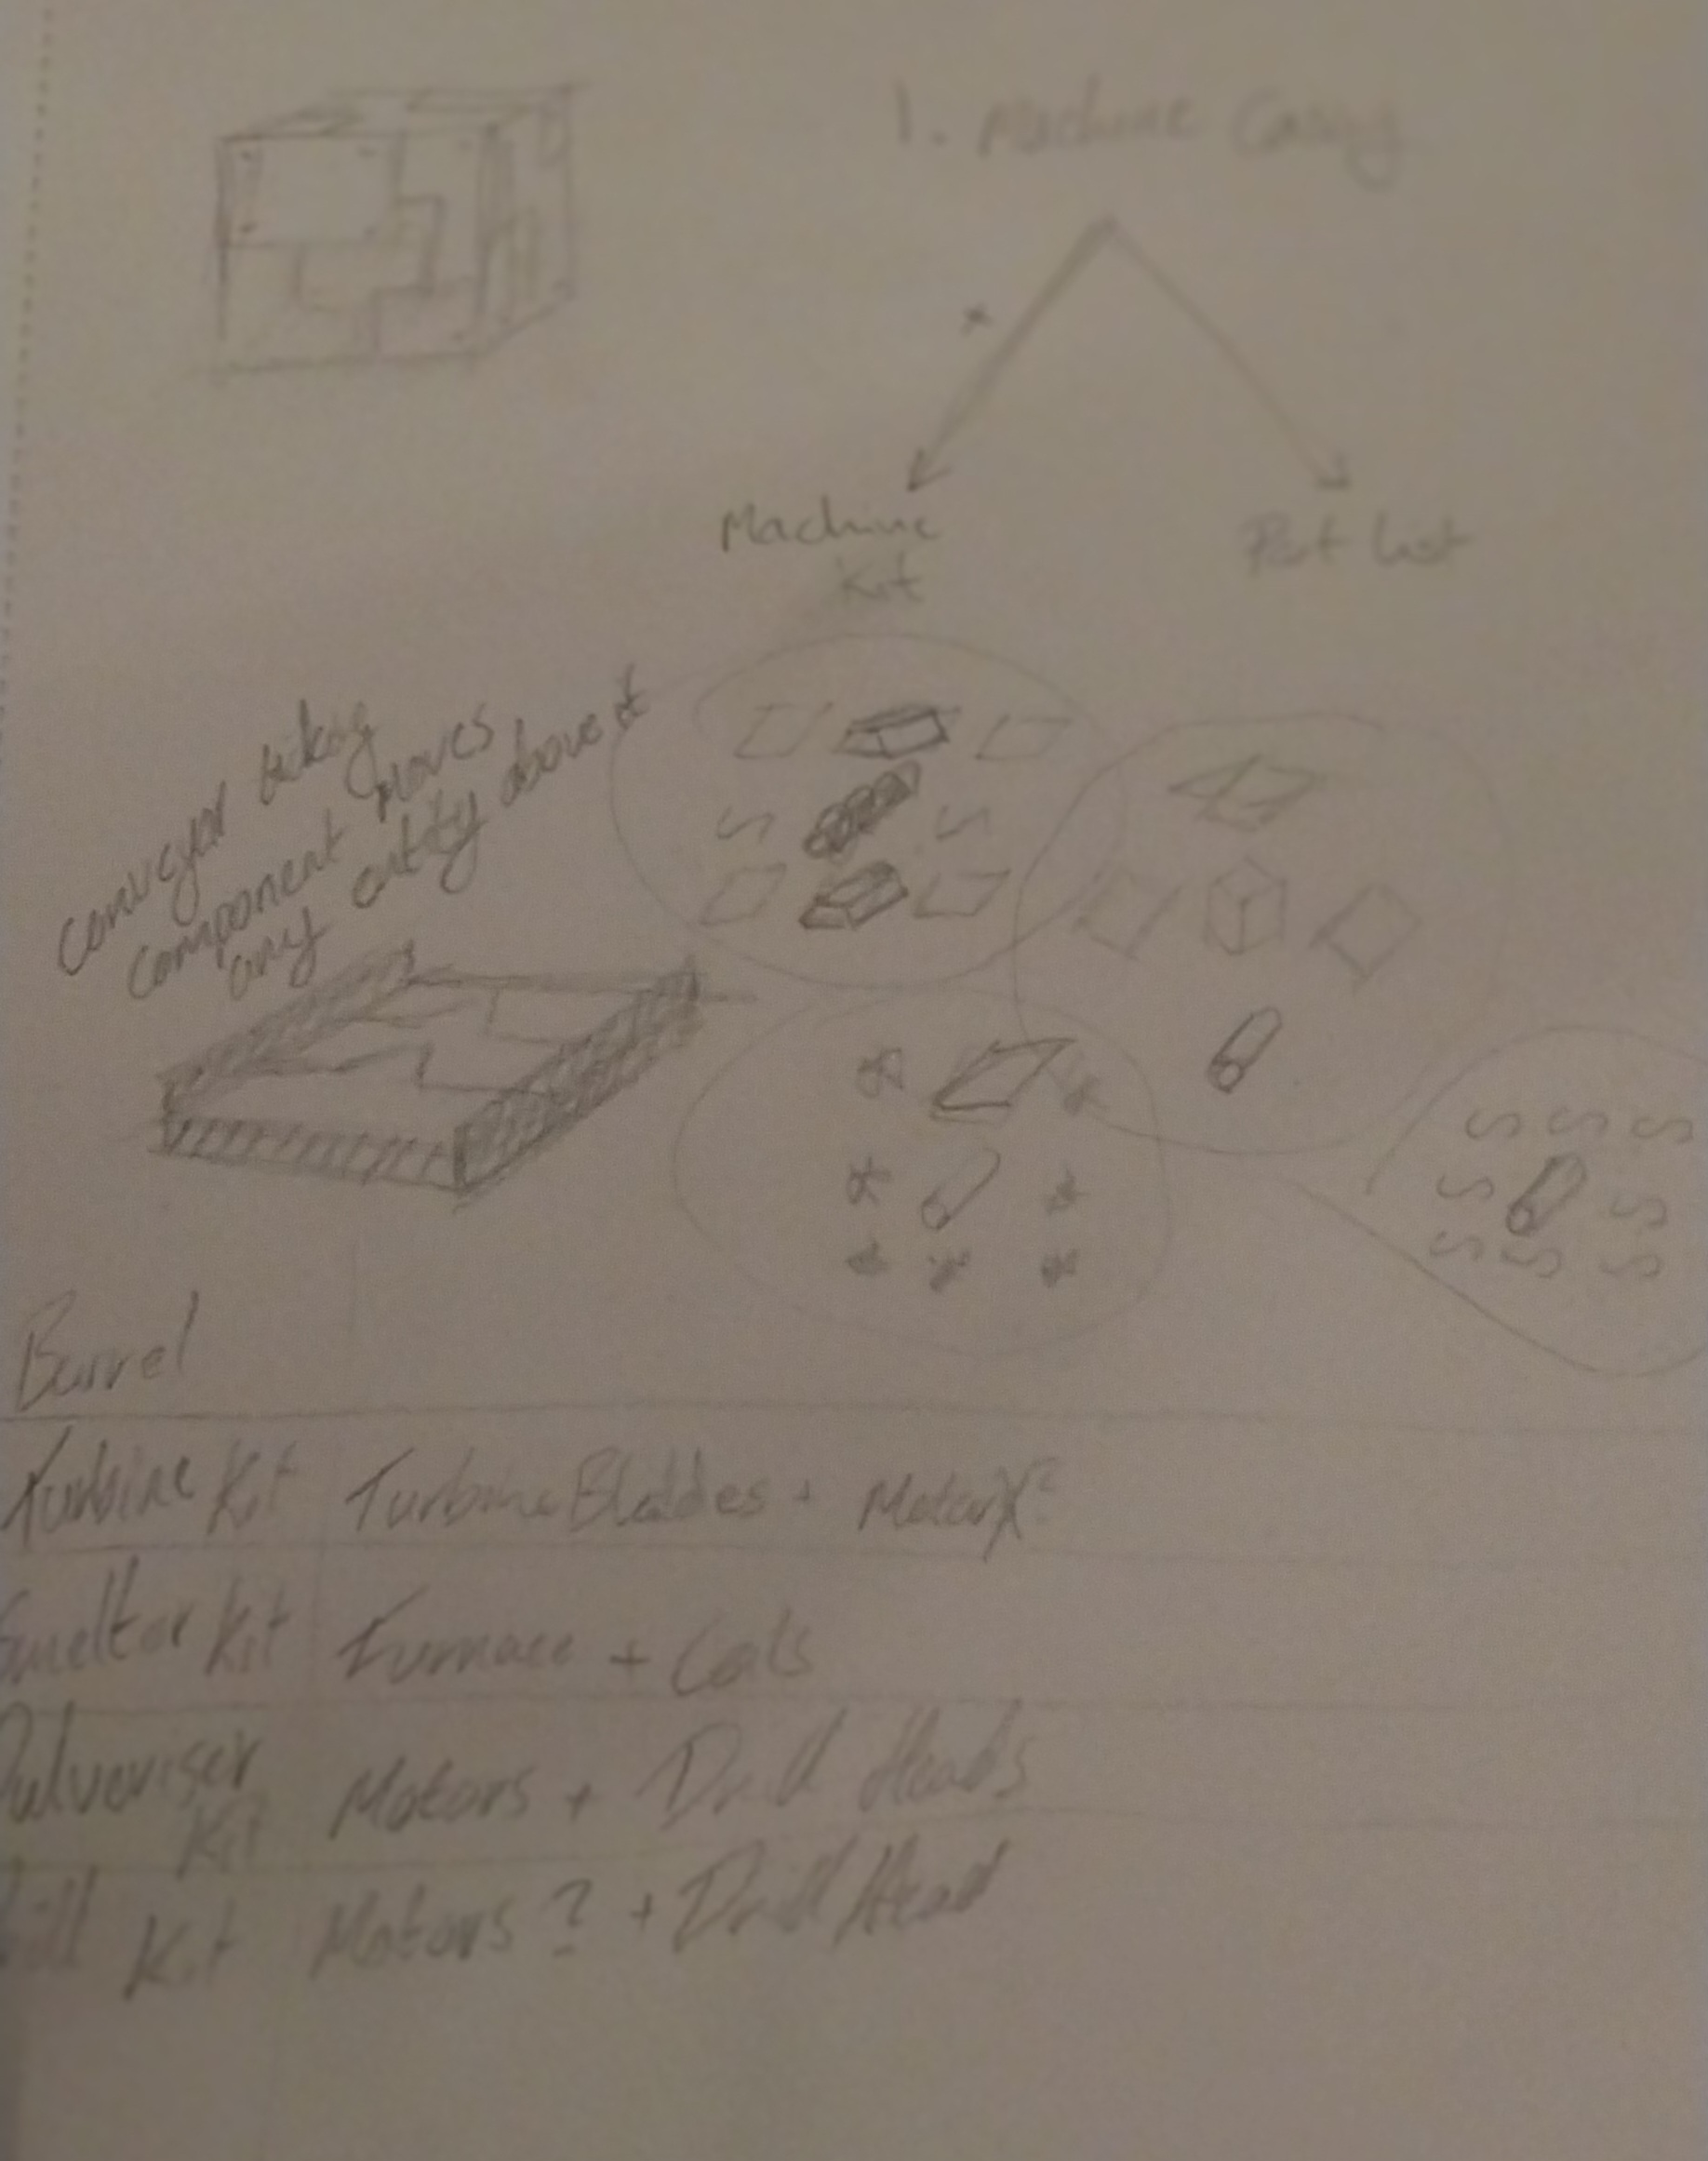 1. Machine Casing
Machine
Kit
Part List
conveyor
component moves
any entity above it
Barrel
Turbine Kit Turbine Bladdes + Motor X²
Smeltor Kit Furnace + Coils
Pulveriser
Kit Motors + Drill Heads
Kit Motors? + Drill Head